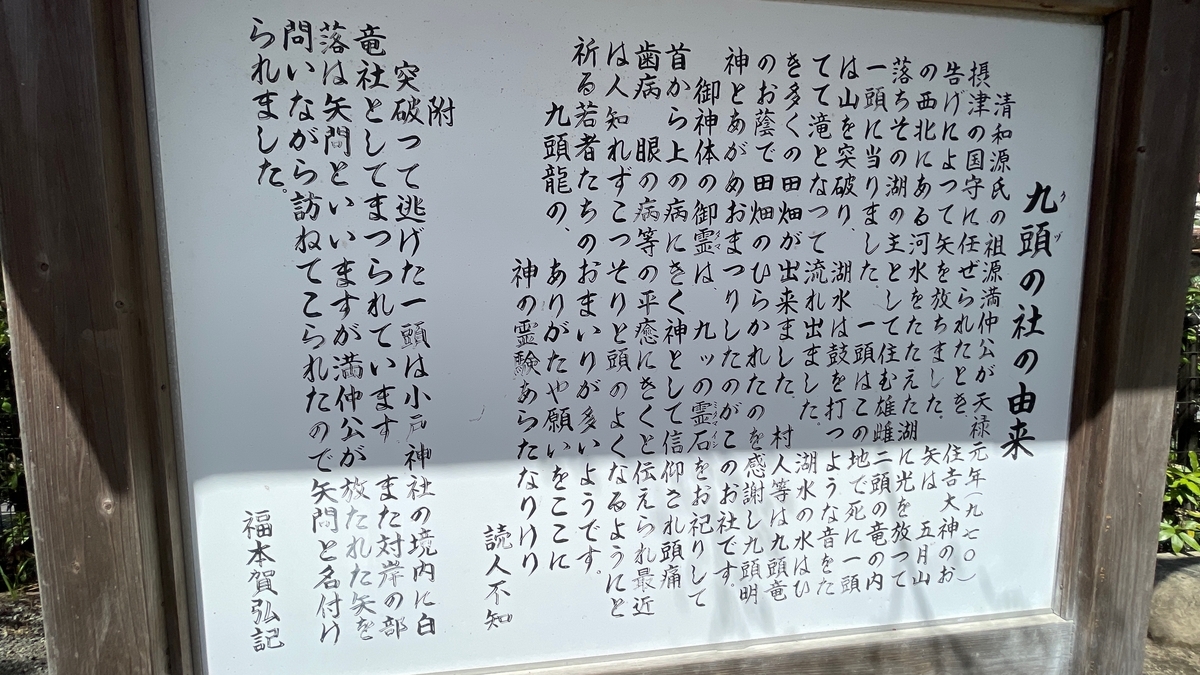 九頭の社の由来
清和源氏の祖源満仲公が天禄元年(九七〇)
摂津の国守に任ぜられたとき 住吉大神のお
告げによって矢を放ちました。矢は 五月山
の西北にある河水をたたえた湖に光を放って
落ちその湖の主として住む雄雌二頭の竜の内
一頭に当りました。一頭はこの地で死に一頭
は山を突破り、湖水は鼓を打つような音をた
てて滝となって流れ出ました。湖水の水はひ
き多くの田畑が出来ました 村人等は九頭竜
のお蔭で田畑のひらかれたのを感謝し九頭明
神とあがめおまつりしたのがこのお社です。
御神体の御霊は、九ッの霊石をお祀りして
首から上の病にきく神として信仰され頭痛
歯病 眼の病等の平癒にきくと伝えられ最近
は人知れずこっそりと頭のよくなるようにと
祈る若者たちのおまいりが多いようです。
九頭龍の、ありがたや願いをここに
神の霊験あらたなりけり
読人不知
附
突破って逃げた一頭は小戸神社の境内に白
竜社としてまつられています また対岸の部
落は矢問といいますが満仲公が放たれた矢を
問いながら訪ねてこられたので矢問と名付け
られました。
福本賀弘記